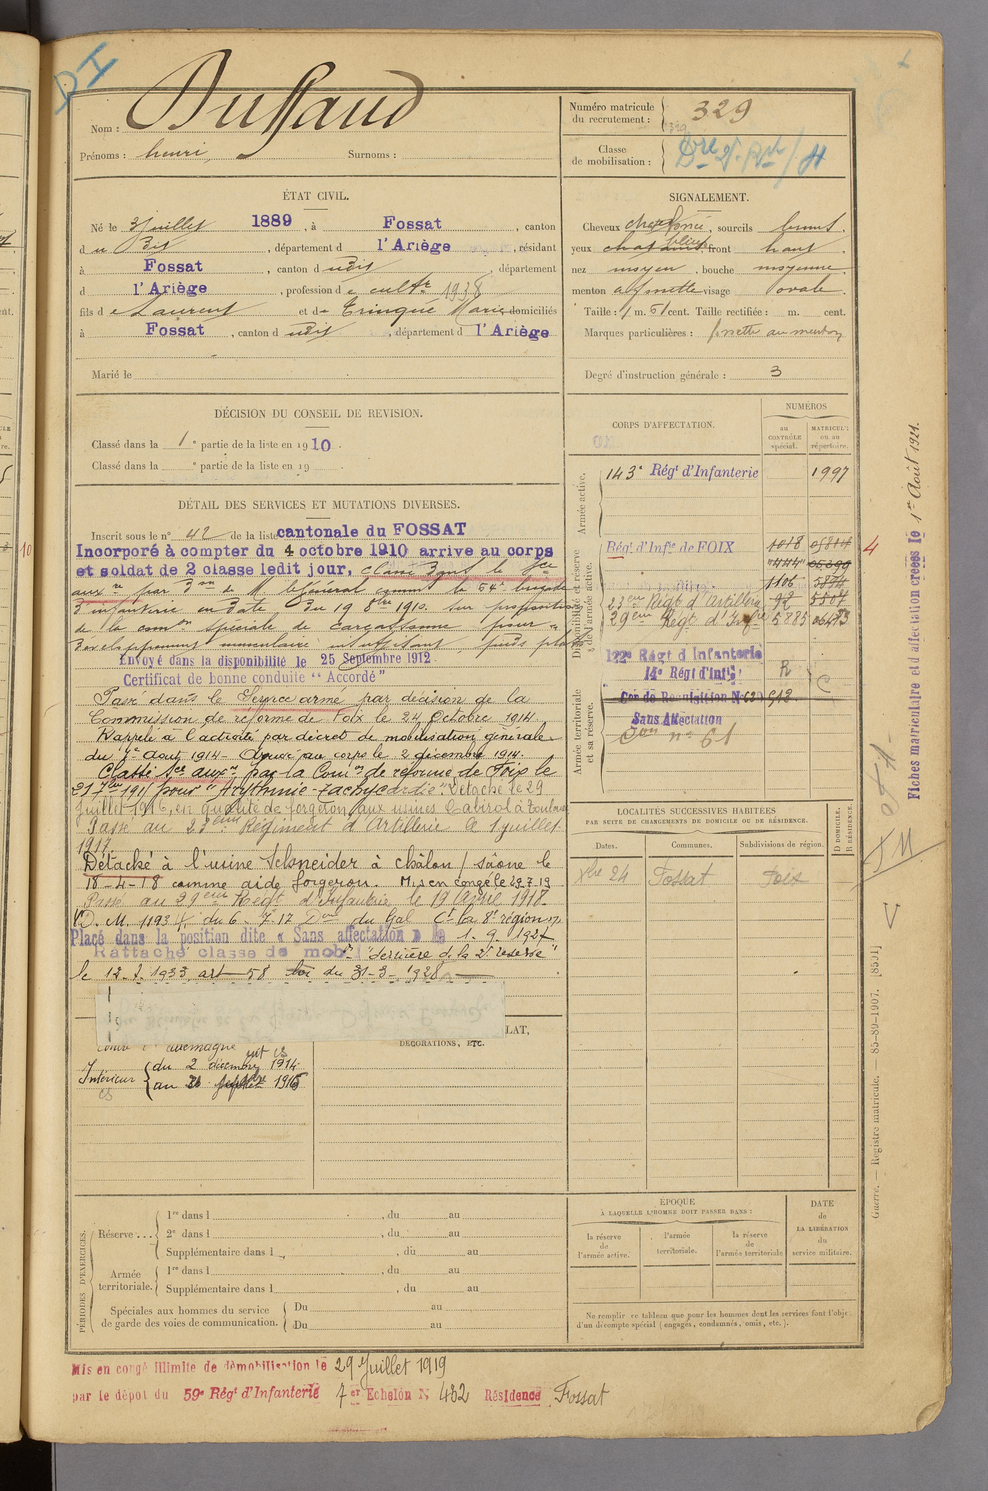 DI
Nom : Dussaud
Prénoms : henri, Surnoms :
Numéro matricule du recrutement : 329
Classe de mobilisation : Dre 2e Rve / H
ÉTAT CIVIL.
Né le 3 juillet 1889, à Fossat, canton
d u dit, département d l'Ariège, résidant
à Fossat, canton d udit, département
d l'Ariège, profession d e cultr 1938
fils d e Laurent et de Trinqué Marie domiciliés
à Fossat, canton d udit, département d l'Ariège
Marié le
SIGNALEMENT.
Cheveux, sourcils bruns
yeux bleus, front haut
nez moyen, bouche moyenne
menton à fossette visage ovale.
Taille : 1 m. 61 cent. Taille rectifiée : m. cent.
Marques particulières : fossette au menton
Degré d'instruction générale : 3
DÉCISION DU CONSEIL DE REVISION.
Classé dans la 1e partie de la liste en 1910.
Classé dans la e partie de la liste en 19
DÉTAIL DES SERVICES ET MUTATIONS DIVERSES.
Inscrit sous le n° 42 de la liste cantonale du FOSSAT
Incorporé à compter du 4 octobre 1910 arrive au corps
et soldat de 2 classe ledit jour, classé dans le sce
auxre par Don de M le Général commt la 54e brigade
d'infanterie en date du 19 8bre 1910. sur proposition
de la comon spéciale de Carcassonne pour
développement musculaire insuffisant, pieds plats
Envoyé dans la disponibilité le 25 Septembre 1912
Certificat de bonne conduite "Accordé"
Passé dans le Service armé par décision de la
Commission de réforme de Foix le 24 Octobre 1914.
Rappelé à l'activité par décret de mobilisation générale
du 1er Août 1914 - Arrivé au corps le 2 décembre 1914.
Classé Sce auxre par la Comon de réforme de Foix le
21 7bre 1915 pour "Arythmie-tachycardie". Détaché le 29
juillet 1916, en qualité de forgeron aux usines Cabirol à Toulouse
Passé au 23eme Régiment d'Artillerie le 1 juillet
1917
Détaché à l'usine Schneider à châlon / saône le
18-4-18 comme aide forgeron. Mis en congé le 29.7.19
Passé au 29eme Régt d'Infanterie, le 19 Avril 1918.
D. M. 11934 du 6-7.17 Don du Gal Ct la 8e région
Placé dans la position dite « Sans affectation » le 1. 9. 1927
Rattaché classe de mob. "dernière de la 2e réserve"
le 12-1.1933 art 58 loi du 31-3-1928
LAT,
DÉCORATIONS, ETC.
contre l'Allemagne
Intérieur du 2 décembre 1914
au 1915
CORPS D'AFFECTATION.
NUMÉROS
au CONTRÔLE spécial.
MATRICULE ou au répertoire.
Armée active.
143e Régt d'Infanterie 1997
Disponibilité et réserve de l'armée active.
Régt d'Infie de FOIX 1018
1106
23eme Régt d'Artillerie 92 5507
29eme Régt d'Infrie 5885
Armée territoriale et sa réserve.
122e Régt d Infanterie
14e Régt d'Infie R C
Cor de Requisition
Sans Affectation
Son n° 61
LOCALITÉS SUCCESSIVES HABITÉES
PAR SUITE DE CHANGEMENTS DE DOMICILE OU DE RÉSIDENCE.
Dates. Communes. Subdivisions de région. D DOMICILE. R RÉSIDENCE.
Xbre 24 Fossat Foix
4
Fiches matriculaire et d'affectation créées le 1er Août 1921.
Guerre. — Registre matricule. — 85-89-1907. [8501]
PÉRIODES D'EXERCICES.
Réserve ... 1re dans l , du au
2e dans l , du au
Supplémentaire dans l , du au
Armée territoriale. 1re dans l , du au
Supplémentaire dans l , du au
Spéciales aux hommes du service de garde des voies de communication. Du au
Du au
ÉPOQUE
À LAQUELLE L'HOMME DOIT PASSER DANS :
la réserve de l'armée active.
l'armée territoriale.
la réserve de l'armée territoriale
DATE de LA LIBÉRATION du service militaire.
Ne remplir ce tableau que pour les hommes dont les services font l'objet
d'un décompte spécial (engagés, condamnés, omis, etc.).
Mis en congé illimité de démobilisation le 29 Juillet 1919
par le dépôt du 59e Régt d'Infanterie 7er Echelon N 432 Résidence Fossat